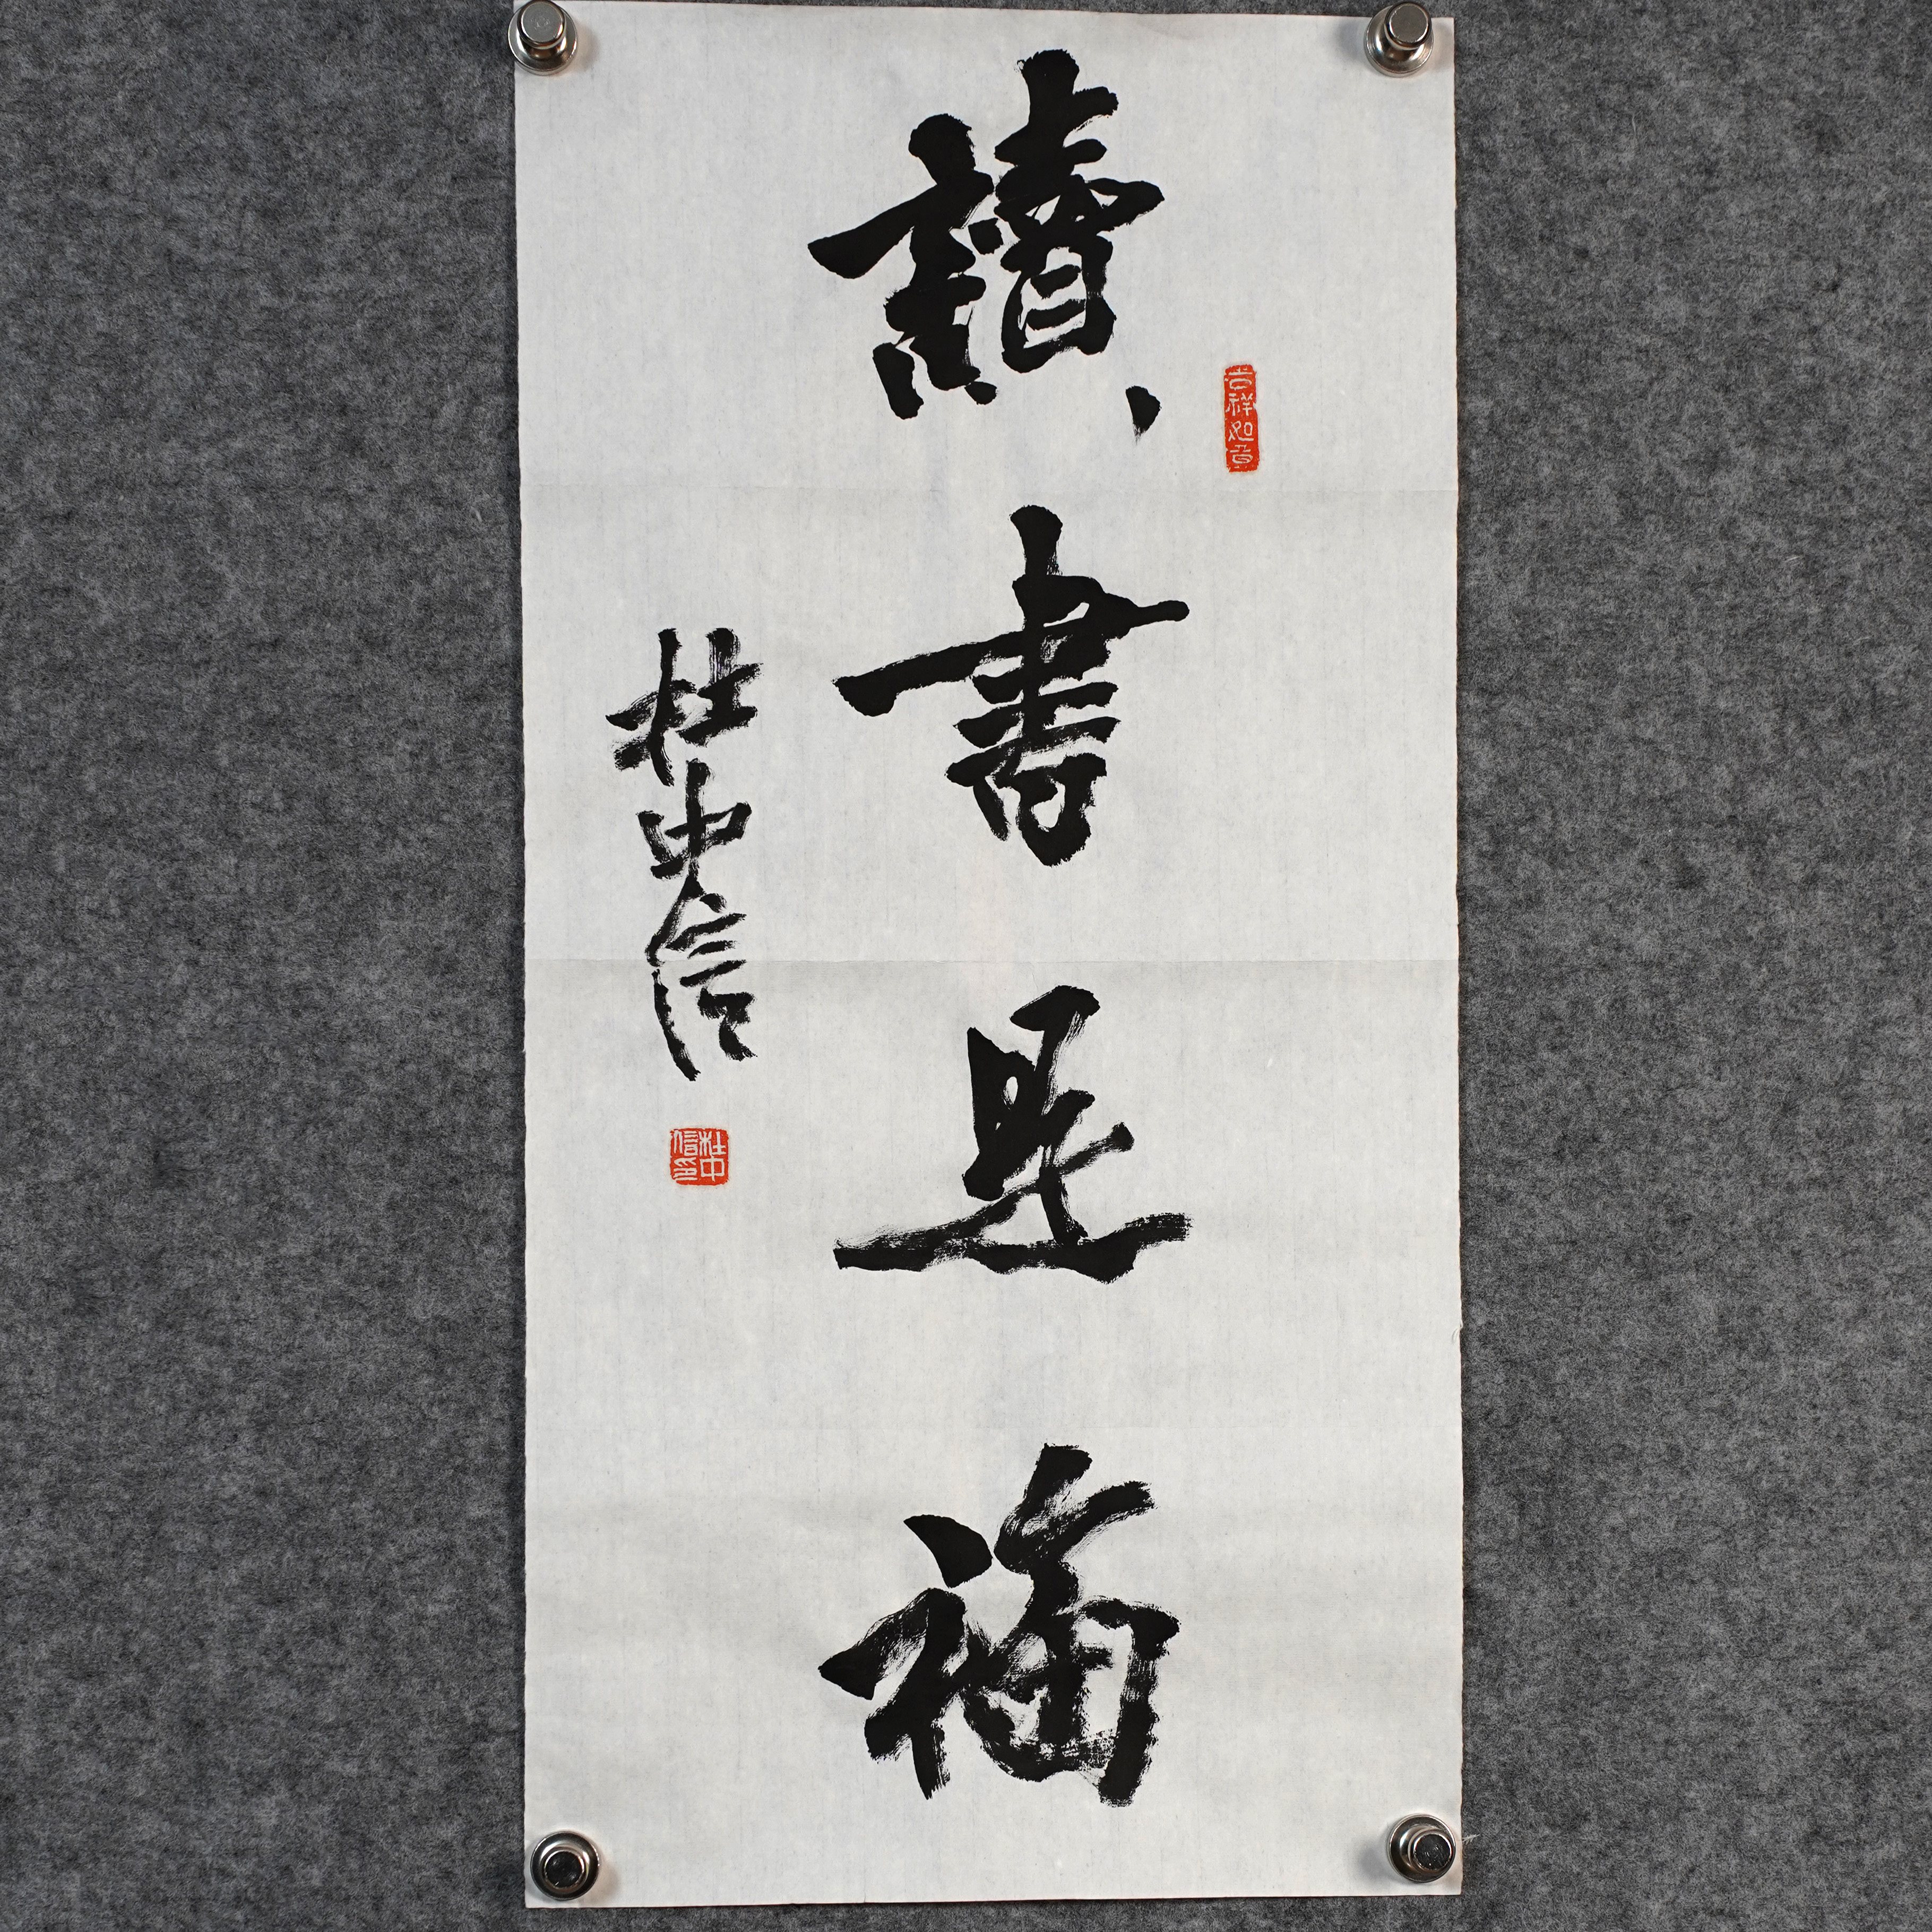 讀書是福
吉祥如意
杜中信
杜中信印